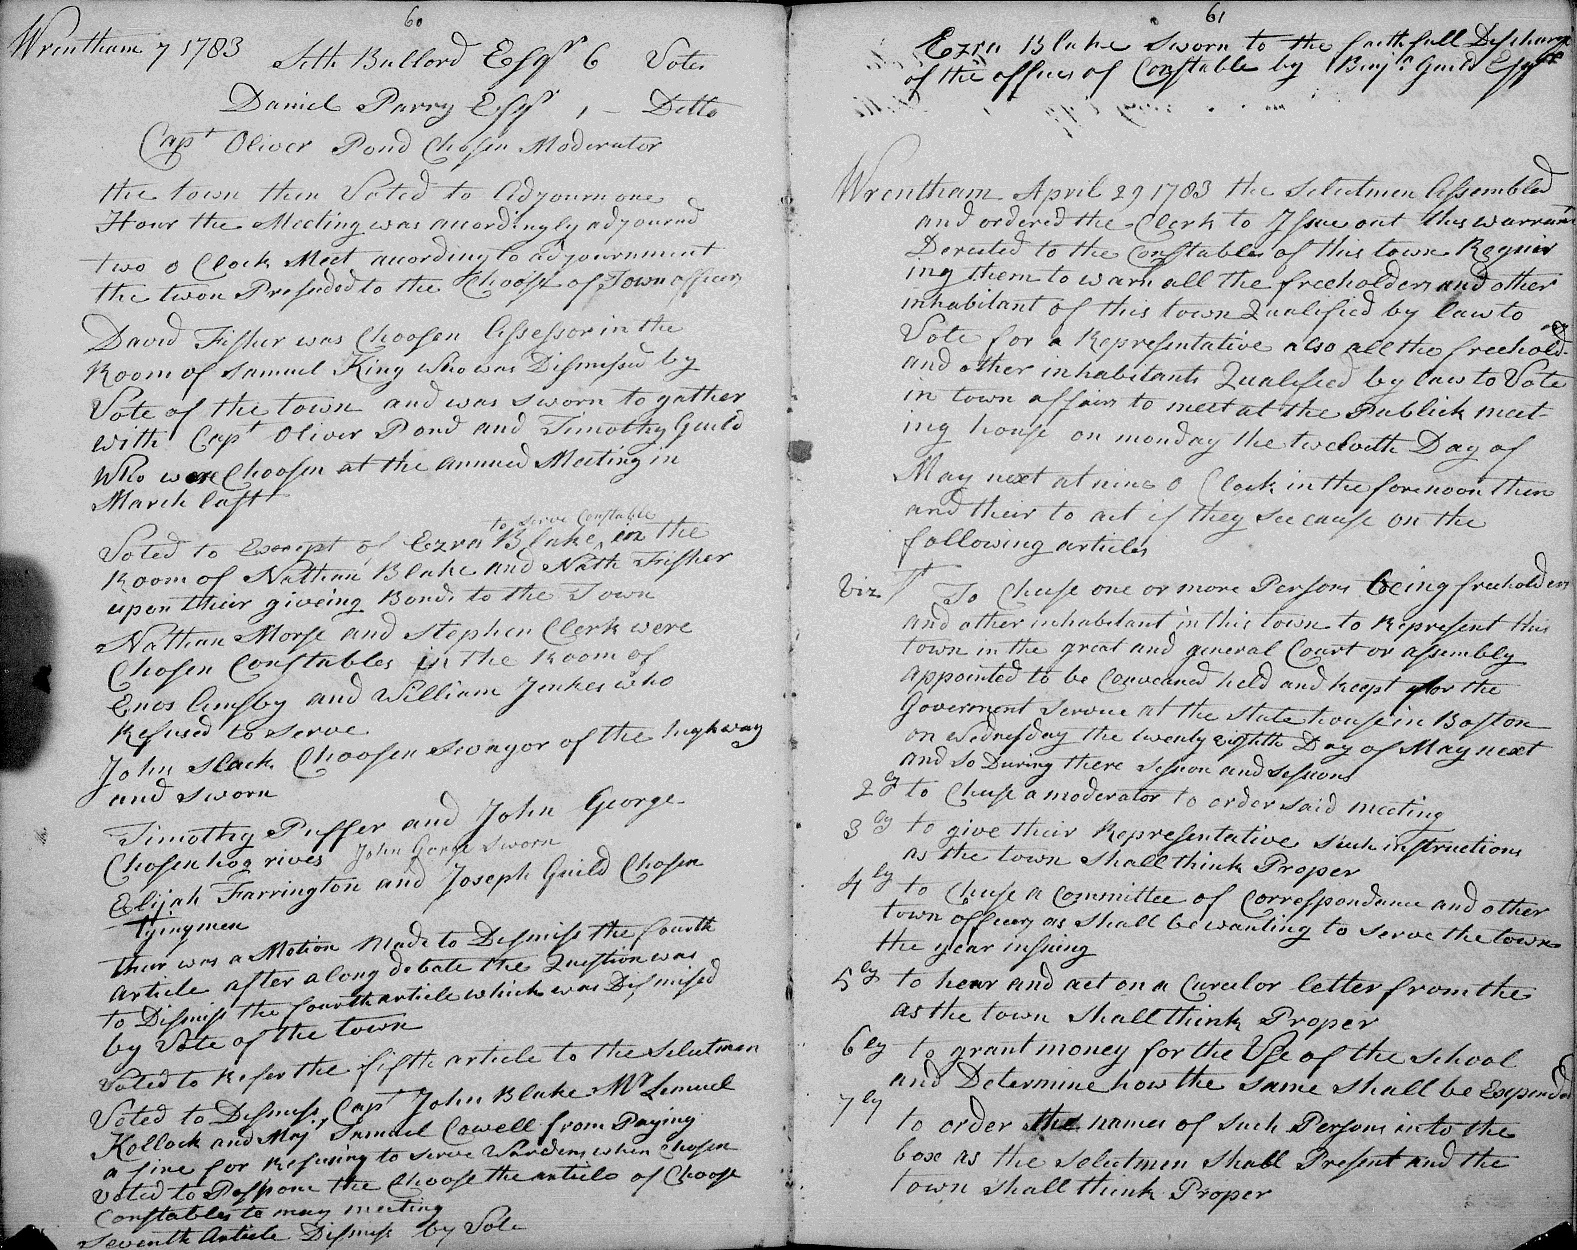 60
Wrentham 7 1783 Seth Bullord Esqr 6 Votes
Daniel Parry Esqr 1 - Ditto
Capt Oliver Pond Chosen Moderator
the town then Voted to Adjourn one
Hour the Meeting was acordingly adjourned
two o Clock Meet acording to adjournment
the twon Proseded to the Choose of Town officers
David Fisher was Choosen Assessor in the
Room of Samuel King Who was Dismissed by
Vote of the town and was sworn to gather
with Capt Oliver Pond and Timothy Guild
Who were Choosen at the annuel Meeting in
March last
to serve Constable
Voted to Except of Ezra Blake in the
Room of Nathan Blake and Nath Fisher
upon their giveing Bonds to the Town
Nathan Morse and Stephen Clerk were
Chosen Constables in the Room of
Enos Amsby and William Jenkes who
Refused to serve
John Slack Choosen Servayor of the highway
and sworn
Timothy Puffer and John George
Chosen hog rives John Gorge sworn
Elijah Farrington and Joseph Guild Chosen
tyingmen
ther was a Motion Made to Dismiss the fourth
article after a long debate the Question was
to Dismiss the fourth article which was Dismised
by Vote of the town
Voted to Refer the fifth article to the Selectmen
Voted to Dismiss Capt John Blake Mr Lemuel
Kollock and Maj Samuel Cowell from Paying
a fine for Refusing to serve Wardens when Chosen
Voted to Pospone the Choose the article of Choose
Constables to may meeting
Seventh Article Dismiss by Vote
61
Ezra Blake Sworn to the faithfull Discharge
of the offices of Constable by Benjn Guild Esqr
Wrentham April 29 1783 the Selectmen Assembled
and ordered the Clerk to Issue out this warrant
Derected to the Constables of this town Requir
ing them to warn all the freeholders and other
inhabitant of this town Qualified by law to
Vote for a Representative also all the freehold-
ers
and other inhabitants Qualified by law to Vote
in town affairs to meet at the Publick meet-
ing house on monday the twelveth Day of
May next at nine o Clock in the forenoon then
and their to act if they see cause on the
following articles
Viz 1st To Chuse one or more Persons being freeholders
and other inhabitant in this town to Represent this
town in the great and general Court or assembly
appointed to be Conveaned held and keept for the
Goverment Service at the State house in Boston
on wednesday the twenty eighth Day of May next
and so During there Session and Sessions
2ly to Chuse a moderator to order said meeting
3ly to give their Representative such instructions
as the town shall think Proper
4ly to Chuse a Committee of Correspondance and other
town officers as shall be wanting to serve the town
the year insuing
5ly to hear and act on a Curculor letter from the
as the town shall think Proper
6ly to grant money for the Use of the School
and Determine how the same shall be Expended
7ly to order the names of such Persons into the
box as the Selectmen shall Present and the
town shall think Proper